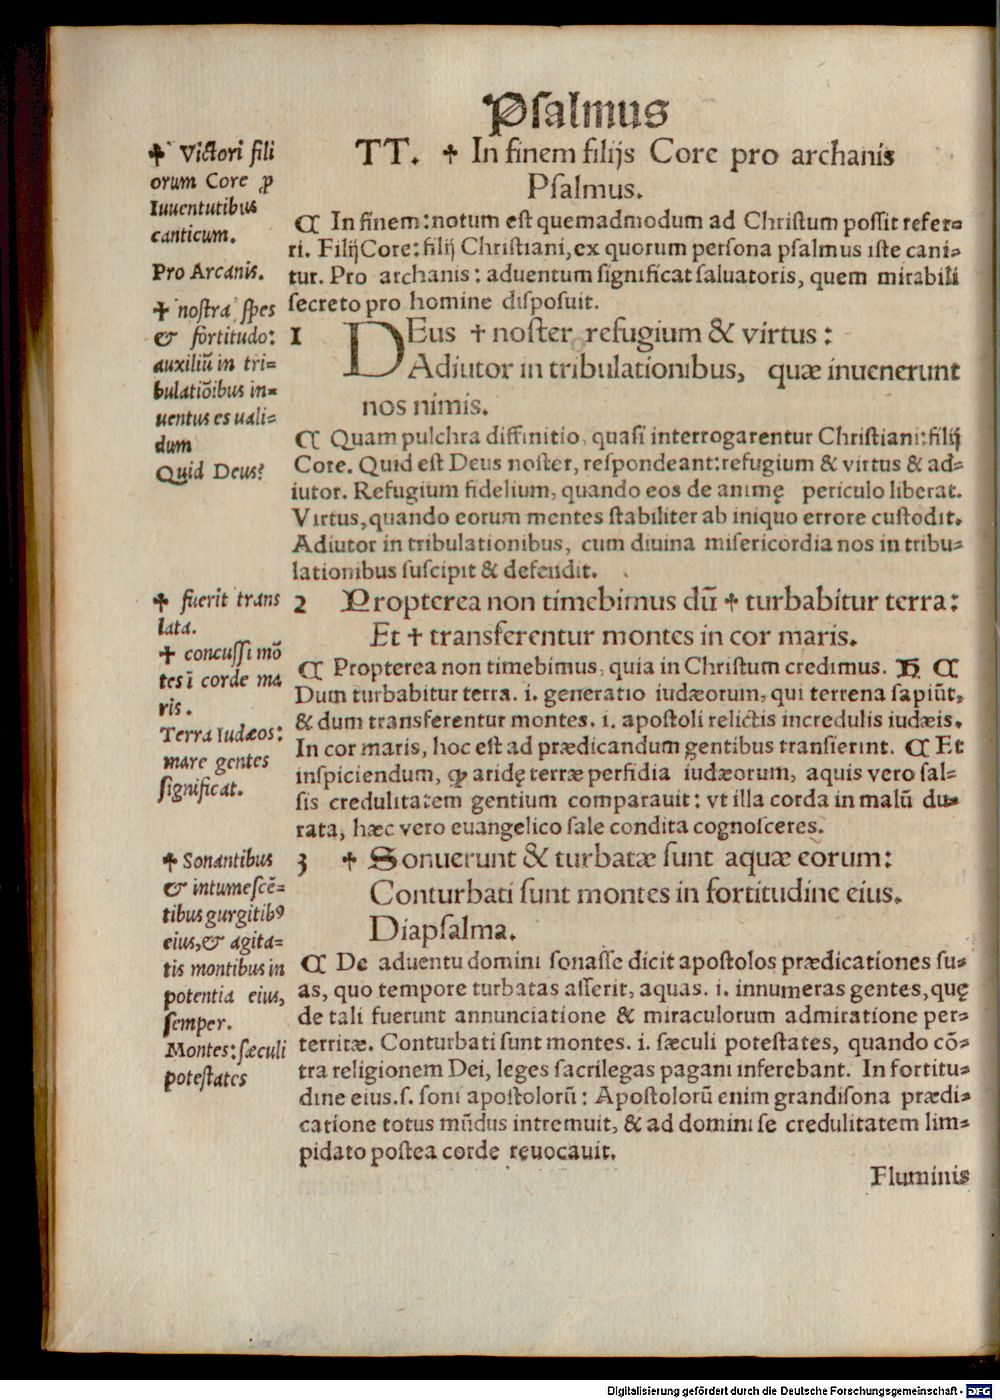 Pſalmus
✝ Victori fili
orum Core ꝑ
Iuuentutibus
canticum.
Pro Arcanis.
✝ noſtra ſpes
& fortitudo:
auxiliū in tri=
bulatiōibus in=
uentus es uali=
dum
Quid Deus?
✝ fuerit trans
lata.
✝ concuſſi mō
tes ī corde ma
ris.
Terra Iudæos:
mare gentes
ſignificat.
✝ Sonantibus
& intumeſcē=
tibus gurgitibꝰ
eius, & agita=
tis montibus in
potentia eius,
ſemper.
Montes: ſæculi
poteſtates
TT. ✝ In finem filijs Core pro archanis
Pſalmus.
¶ In finem: notum eſt quemadmodum ad Chriſtum poſſit refer=
ri. Filij Core: filij Chriſtiani, ex quorum perſona pſalmus iſte cani=
tur. Pro archanis: aduentum ſignificat ſaluatoris, quem mirabili
ſecreto pro homine diſpoſuit.
1 DEus ✝ noſter refugium & virtus:
Adiutor in tribulationibus, quæ inuenerunt
nos nimis.
¶ Quam pulchra diffinitio, quaſi interrogarentur Chriſtiani: filij
Core. Quid eſt Deus noſter, reſpondeant: refugium & virtus & ad=
iutor. Refugium fidelium, quando eos de animę periculo liberat.
Virtus, quando eorum mentes ſtabiliter ab iniquo errore cuſtodit.
Adiutor in tribulationibus, cum diuina miſericordia nos in tribu=
lationibus ſuſcipit & defendit.
2 Propterea non timebimus dū ✝ turbabitur terra:
Et ✝ transferentur montes in cor maris.
¶ Propterea non timebimus, quia in Chriſtum credimus. H ¶
Dum turbabitur terra. i. generatio iudæorum, qui terrena ſapiūt,
& dum transferentur montes. i. apoſtoli relictis incredulis iudæis.
In cor maris, hoc eſt ad prædicandum gentibus tranſierint. ¶ Et
inſpiciendum, ꝙ aridę terræ perfidia iudæorum, aquis vero ſal=
ſis credulitatem gentium comparauit: vt illa corda in malū du=
rata, hæc vero euangelico ſale condita cognoſceres.
3 ✝ Sonuerunt & turbatæ ſunt aquæ eorum:
Conturbati ſunt montes in fortitudine eius.
Diapſalma.
¶ De aduentu domini ſonaſſe dicit apoſtolos prædicationes ſu=
as, quo tempore turbatas aſſerit, aquas. i. innumeras gentes, quę
de tali fuerunt annunciatione & miraculorum admiratione per=
territæ. Conturbati ſunt montes. i. ſæculi poteſtates, quando cō=
tra religionem Dei, leges ſacrilegas pagani inferebant. In fortitu=
dine eius. ſ. ſoni apoſtolorū: Apoſtolorū enim grandiſona prædi=
catione totus mūdus intremuit, & ad domini ſe credulitatem lim=
pidato poſtea corde reuocauit.
Fluminis
Digitalisierung gefördert durch die Deutsche Forschungsgemeinschaft - DFG